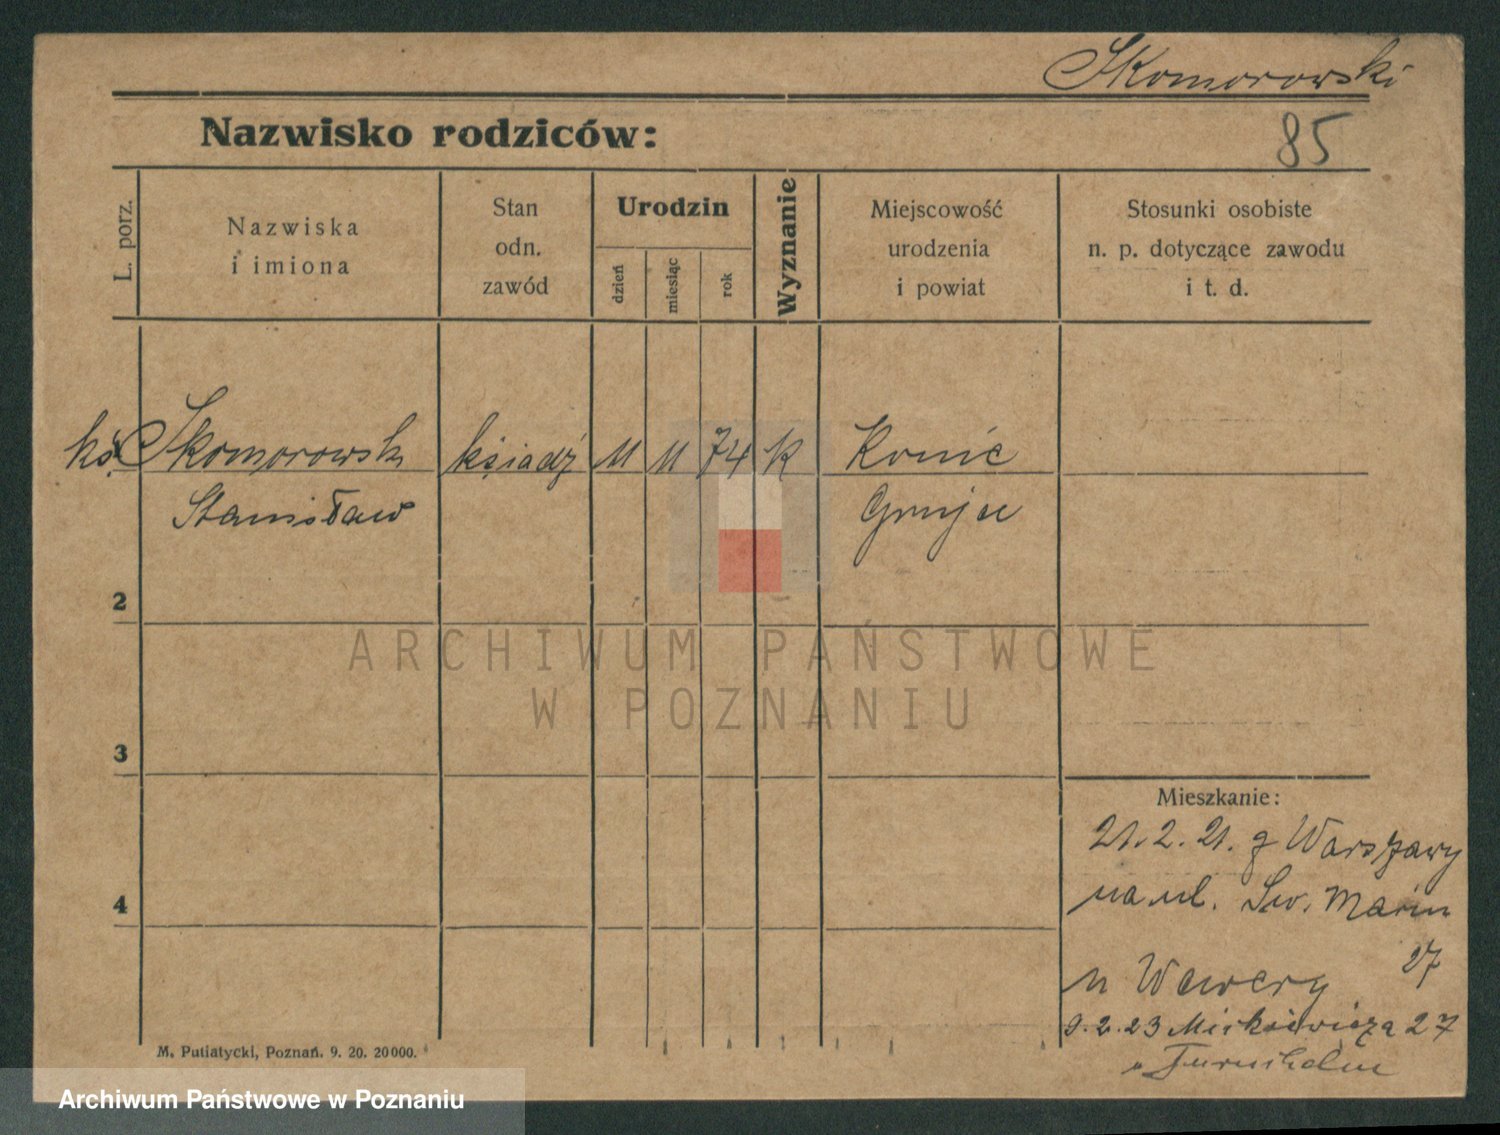 Skomorowski
85
Nazwisko rodziców:
L. porz.
Nazwiska
i imiona
Stan
odn.
zawód
Urodzin
dzień
miesiąc
rok
Wyznanie
Miejscowość
urodzenia
i powiat
Stosunki osobiste
n. p. dotyczące zawodu
i t. d.
ks. Skomorowski ksiądz 11 11 74 k
Stanisław
2
3
4
Mieszkanie:
21. 2. 21. z Warszawy
na ul. Św. Marcin
27
u Wawery
9. 2. 23 Mickiewicza 27
M. Putiatycki, Poznań. 9. 20. 20000.
ARCHIWUM PAŃSTWOWE
W POZNANIU
Archiwum Państwowe w Poznaniu